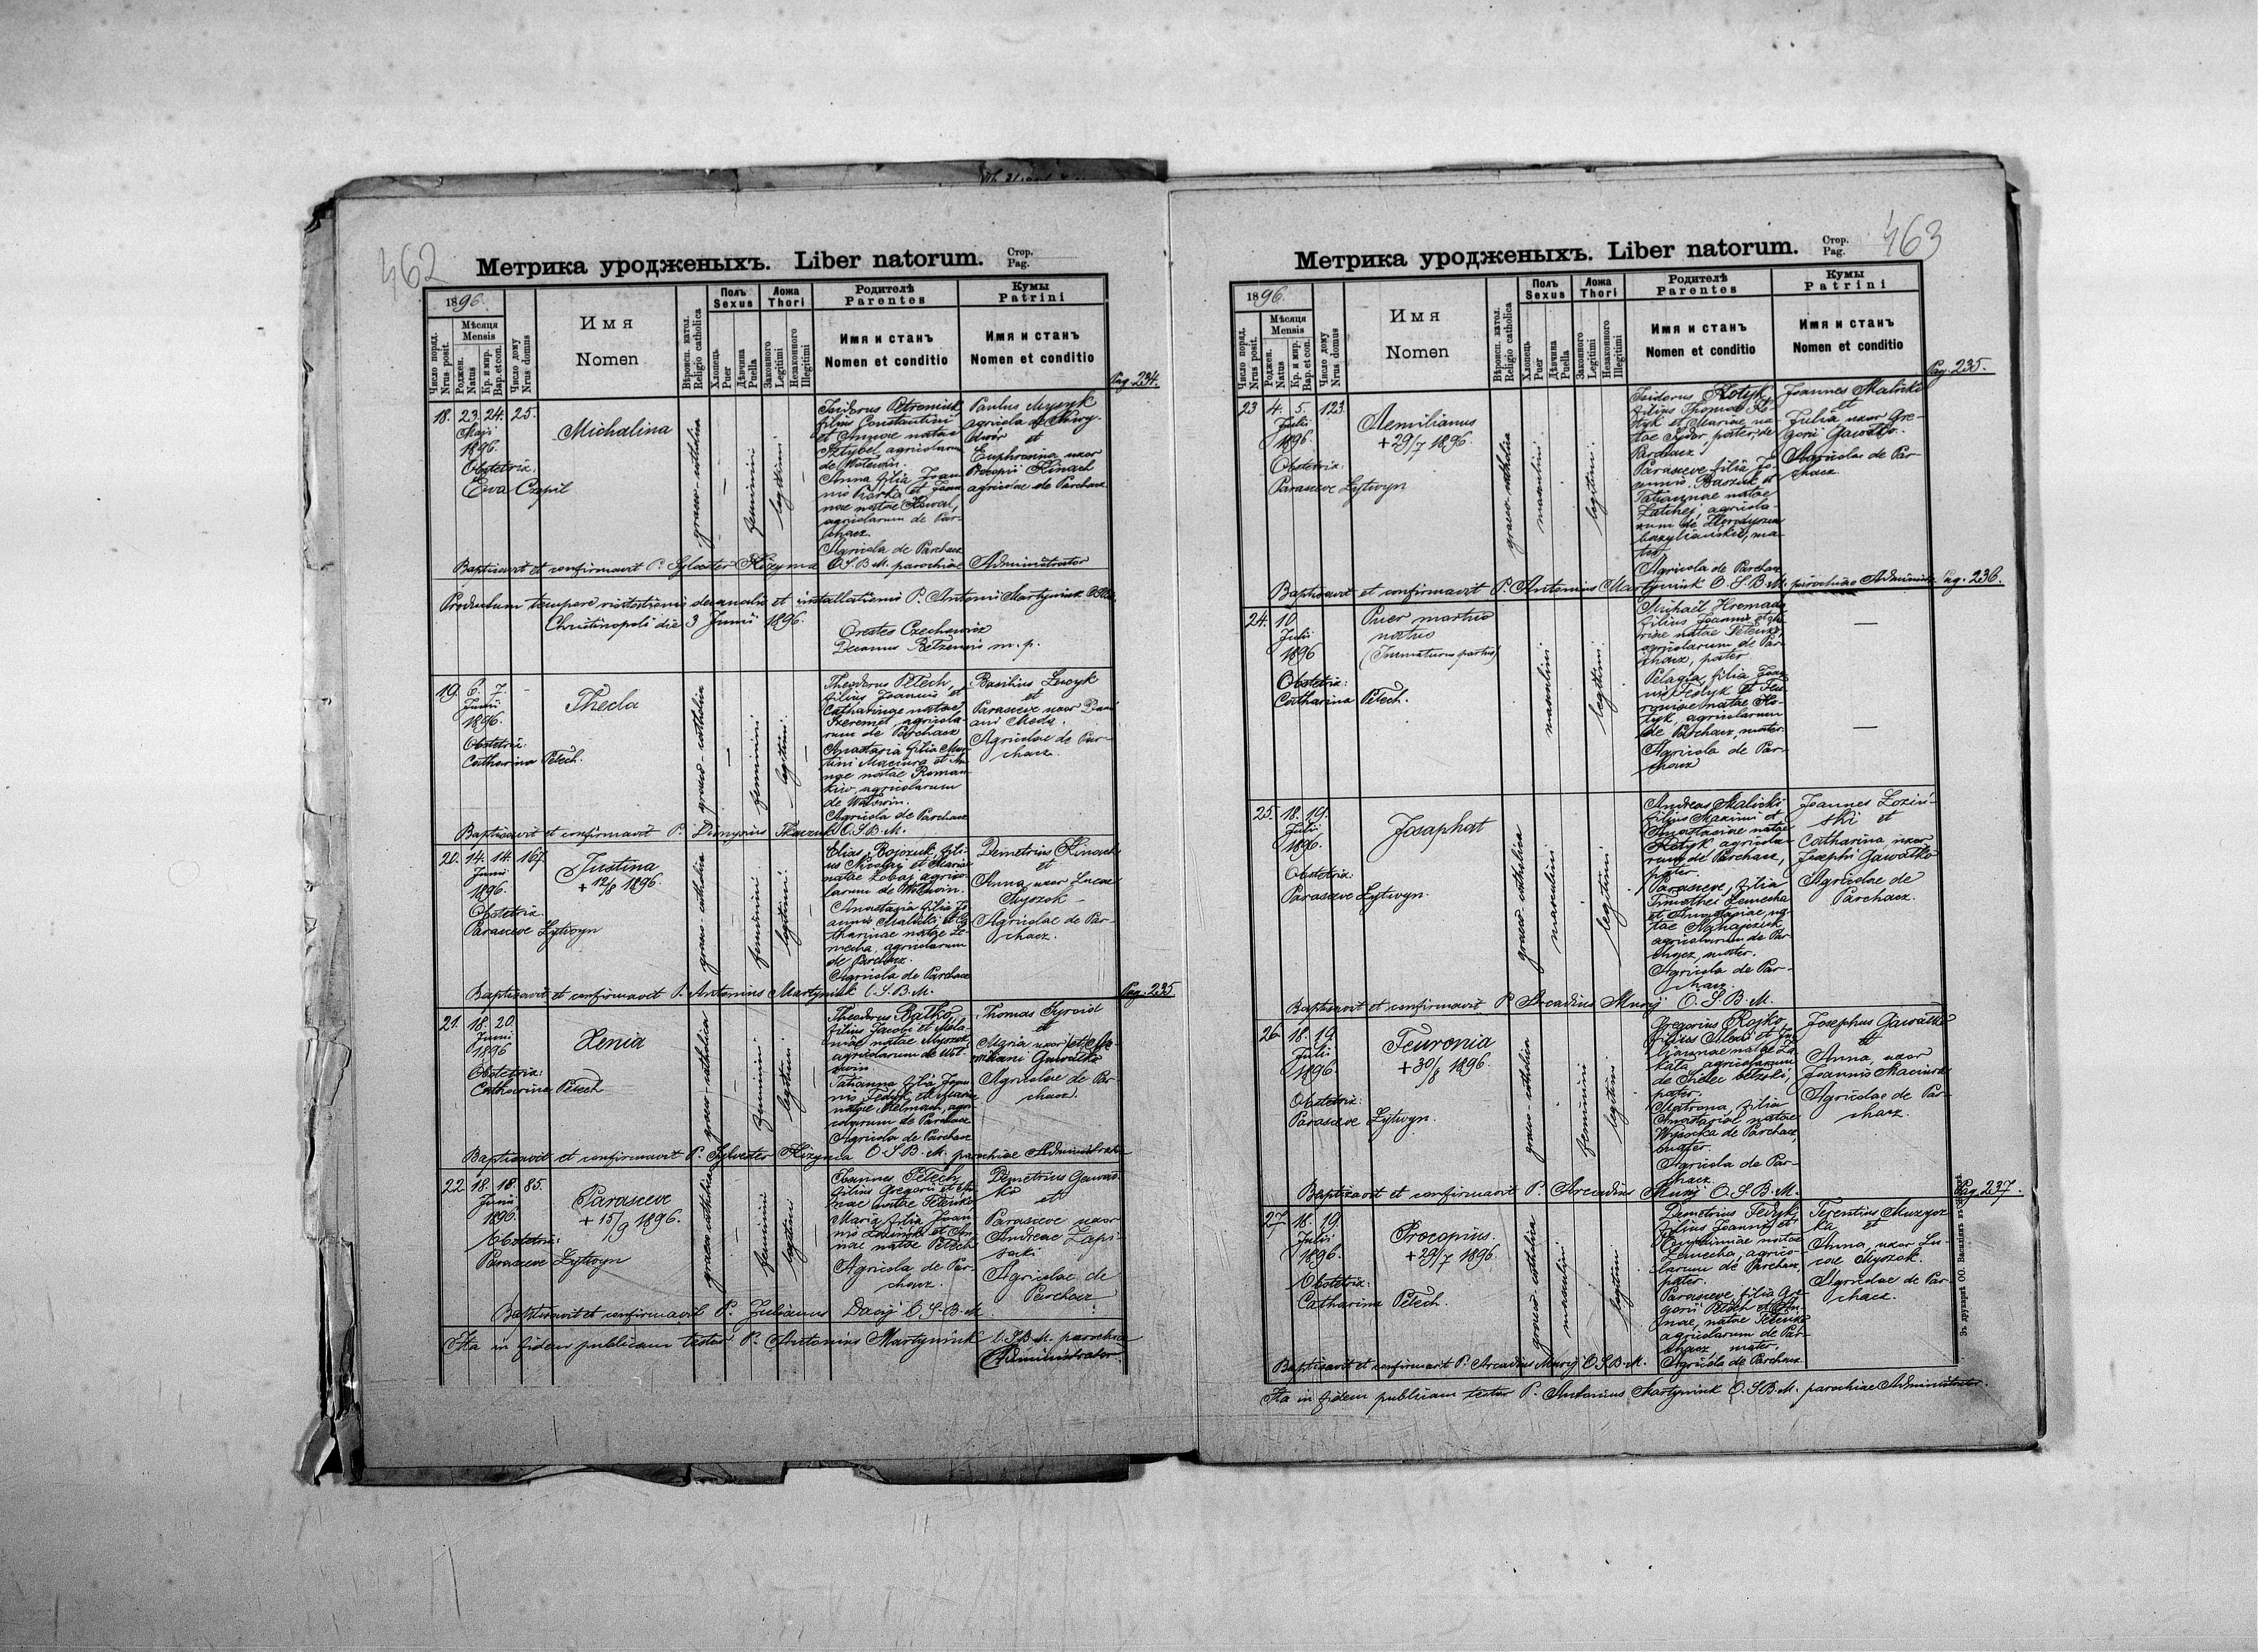 462
Метрика уродженыхъ. Liber natorum.
Стор.
Pag.
1896.
Число поряд.
Nrus posit.
Мѣсяця
Mensis
Роджен.
Natus
Кр. и мир.
Bap. et con.
Число дому
Nrus domus
Имя
Nomen
Вѣроисп. катол.
Religio catholica
Полъ
Sexus
Хлопець
Puer
Дѣвчина
Puella
Ложа
Thori
Законного
Legitimi
Незаконного
Illegitimi
Родителѣ
Parentes
Имя и станъ
Nomen et conditio
Кумы
Patrini
Имя и станъ
Nomen et conditio
Pag. 234.
18. 23. 24. 25.
Maji
1896.
Obstetrix:
Eva Czepil
Michalina
graeco-catholica
feminini
legitimi
Isidorus Petroniuk,
filius Constantini
et Annae natae
Sztybel, agricolarum
de Wolswin.
Anna filia Joan-
nis Piorko et Joan-
nae natae Kowal,
agricolarum de Par-
chacz.
Agricola de Parchacz
Paulus Mysyk
agricola de Nowy-
dwór
et
Euphrosina uxor
Procopii Kinach
agricolae de Parchacz
Baptisavit et confirmavit P. Sylvester Kizyma O.S.B.M. parochiae Administrator
Productum tempore visitationis decanalis et installationis P. Antonii Martyniuk
Christinopoli die 3 Junii 1896.
Orestes Czechowicz
Decanus Belzensis m. p.
19. 6. 7. -
Junii
1896.
Obstetrix:
Catharina Petech.
Thecla
graeco-catholica
feminini
legitimi
Theodorus Petech,
filius Joannis et
Catharinae natae
Szeremet, agricola-
rum de Parchacz
Anastasia filia Mar-
tini Maciura et An-
nae natae Roman-
kiw, agricolarum
de Wolswin.
Agricola de Parchacz
Basilius Lewyk
et
Parasceve uxor Dami-
ani Medes.
Agricolae de Par-
chacz.
Baptisavit et confirmavit P. Dionysius Tkaczuk O.S.B.M.
20. 14. 14. 167.
Junii
1896.
Obstetrix
Parasceve Lytwyn
Justina
+ 12/8 1896.
graeco-catholica
feminini
legitimi
Elias Bojczuk, fili-
us Nicolai et Mariae
natae Lobaj, agrico-
larum de Wolswin.
Anastasia filia Jo-
annis Malicki et Ca-
tharinae natae Le-
mecha, agricolarum
de Parchacz.
Agricola de Parchacz
Demetrius Kinach
et
Anna uxor Lucae
Myszok
Agricolae de Par-
chacz.
Baptisavit et confirmavit P. Antonius Martyniuk O.S.B.M.
Pag. 235
21. 18. 20.
Junii
1896
Obstetrix:
Catharina Petech
Xenia
graeco-catholica
feminini
legitimi
Theodorus Batko,
filius Jacobi et Mela-
niae natae Myszok,
agricolarum de Wol-
swin.
Tatianna filia Joan-
nis Fedyk, et Mariae
natae Helmach, agri-
colarum de Parchacz
Agricola de Parchacz
Thomas Syroid
et
Maria uxor Ae-
miliani Gawalko
Agricolae de Par-
chacz.
Baptisavit et confirmavit P. Sylvester Kizyma O.S.B.M. parochiae Administrator
22. 18. 18. 85.
Junii
1896.
Obstetrix:
Parasceve Lytwyn
Parasceve
+ 15/9 1896.
graeco-catholica
feminini
legitimi
Joannes Petech,
filius Gregorii et An-
nae natae Petenko,
Maria filia Joan-
nis Lozinski et An-
nae natae Petech
Agricola de Par-
chacz.
Demetrius Gawal-
ko
et
Parasceve uxor
Andreae Zapi-
socki
Agricolae de
Parchacz
Baptisavit et confirmavit P. Julianus Dacij O.S.B.M.
Ita in fidem publicam testor P. Antonius Martyniuk O.S.B.M. parochiae
Administrator
463
Метрика уродженыхъ. Liber natorum.
Стор.
Pag.
1896.
Число поряд.
Nrus posit.
Мѣсяця
Mensis
Роджен.
Natus
Кр. и мир.
Bap. et con.
Число дому
Nrus domus
Имя
Nomen
Вѣроисп. катол.
Religio catholica
Полъ
Sexus
Хлопець
Puer
Дѣвчина
Puella
Ложа
Thori
Законного
Legitimi
Незаконного
Illegitimi
Родителѣ
Parentes
Имя и станъ
Nomen et conditio
Кумы
Patrini
Имя и станъ
Nomen et conditio
Pag. 235.
23 4. 5. 123.
Julii
1896.
Obstetrix:
Parasceve Lytwyn
Aemilianus
+ 29/7 1896.
graeco-catholica
masculini
legitimi
Isidorus Kotyk,
filius Thomae Ko-
tyk et Mariae na-
tae Sydor, pater, de
Parchacz.
Parasceve filia Jo-
annis Baszuk et
Tatiannae natae
Latchej, agricola-
rum de Horodyszcze
bazyliańskie, ma-
ter
Agricola de Parchacz
Joannes Malicki
et
Julia uxor Gre-
gorii Gawalko.
Agricolae de Par-
chacz.
Baptisavit et confirmavit P. Antonius Martyniuk O.S.B.M. parochiae Administr.
Pag. 236.
24. 10
Julii
1896
Obstetrix:
Catharina Petech.
Puer mortuo
natus
(Immaturus partus)
masculini
legitimi
Michaël Hromada,
filius Joannis et Ma-
riae natae Petenko,
agricolarum de Par-
chacz, pater
Pelagia, filia Joan-
nis Fedyk et Feu-
roniae natae Ko-
tyk, agricolarum
de Parchacz, mater.
Agricola de Par-
chacz
25. 18. 19.
Julii
1896.
Obstetrix:
Parasceve Lytwyn.
Josaphat
graeco-catholica
masculini
legitimi
Andreas Malicki
filius Maximi et
Anastasiae natae
Kotyk agricola-
rum de Parchacz,
pater.
Parasceve, filia
Timothei Lemecha
et Anastasiae na-
tae Mychajciuk
agricolarum de Par-
chacz, mater.
Agricola de Par-
chacz.
Joannes Loziń-
ski et
Catharina, uxor
Josephi Gawalko
Agricolae de
Parchacz.
Baptisavit et confirmavit P. Arcadius Muryj O.S.B.M.
26. 18. 19.
Julii
1896.
Obstetrix:
Parasceve Lytwyn.
Feuronia
+ 30/8 1896.
graeco-catholica
feminini
legitimi
Gregorius Rojko
filius Alexii et Ju-
liannae natae Za-
kata, agricolarum
de Sielec belzski,
pater.
Matrona, filia
Anastasiae natae
Wysocka de Parchacz,
mater.
Agricola de Par-
chacz.
Josephus Gawalko
et
Anna, uxor
Joannis Maciura
Agricolae de Par-
chacz.
Baptizavit et confirmavit P. Arcadius Muryj O.S.B.M.
Pag. 237.
27. 18. 19.
Julii
1896.
Obstetrix:
Catharina Petech.
Procopius.
+ 29/7 1896.
graeco-catholica
masculini
legitimi
Demetrius Fedyk,
filius Joannis et
Euphimiae natae
Lemecha, agrico-
larum de Parchacz,
pater.
Parasceve filia Gre-
gorii Petech et An-
nae, natae Petenko
agricolarum de Par-
chacz, mater.
Agricola de Parchacz
Terentius Muzycz-
ka et
Anna, uxor Lu-
cae Myszok.
Agricolae de Par-
chacz.
Baptisavit et confirmavit P. Arcadius Muryj O.S.B.M.
Ita in fidem publicam testor P. Antonius Martyniuk O.S.B.M. parochiae Administrator.
Зъ друкарнѣ ОО. Василіянъ въ Жовквѣ